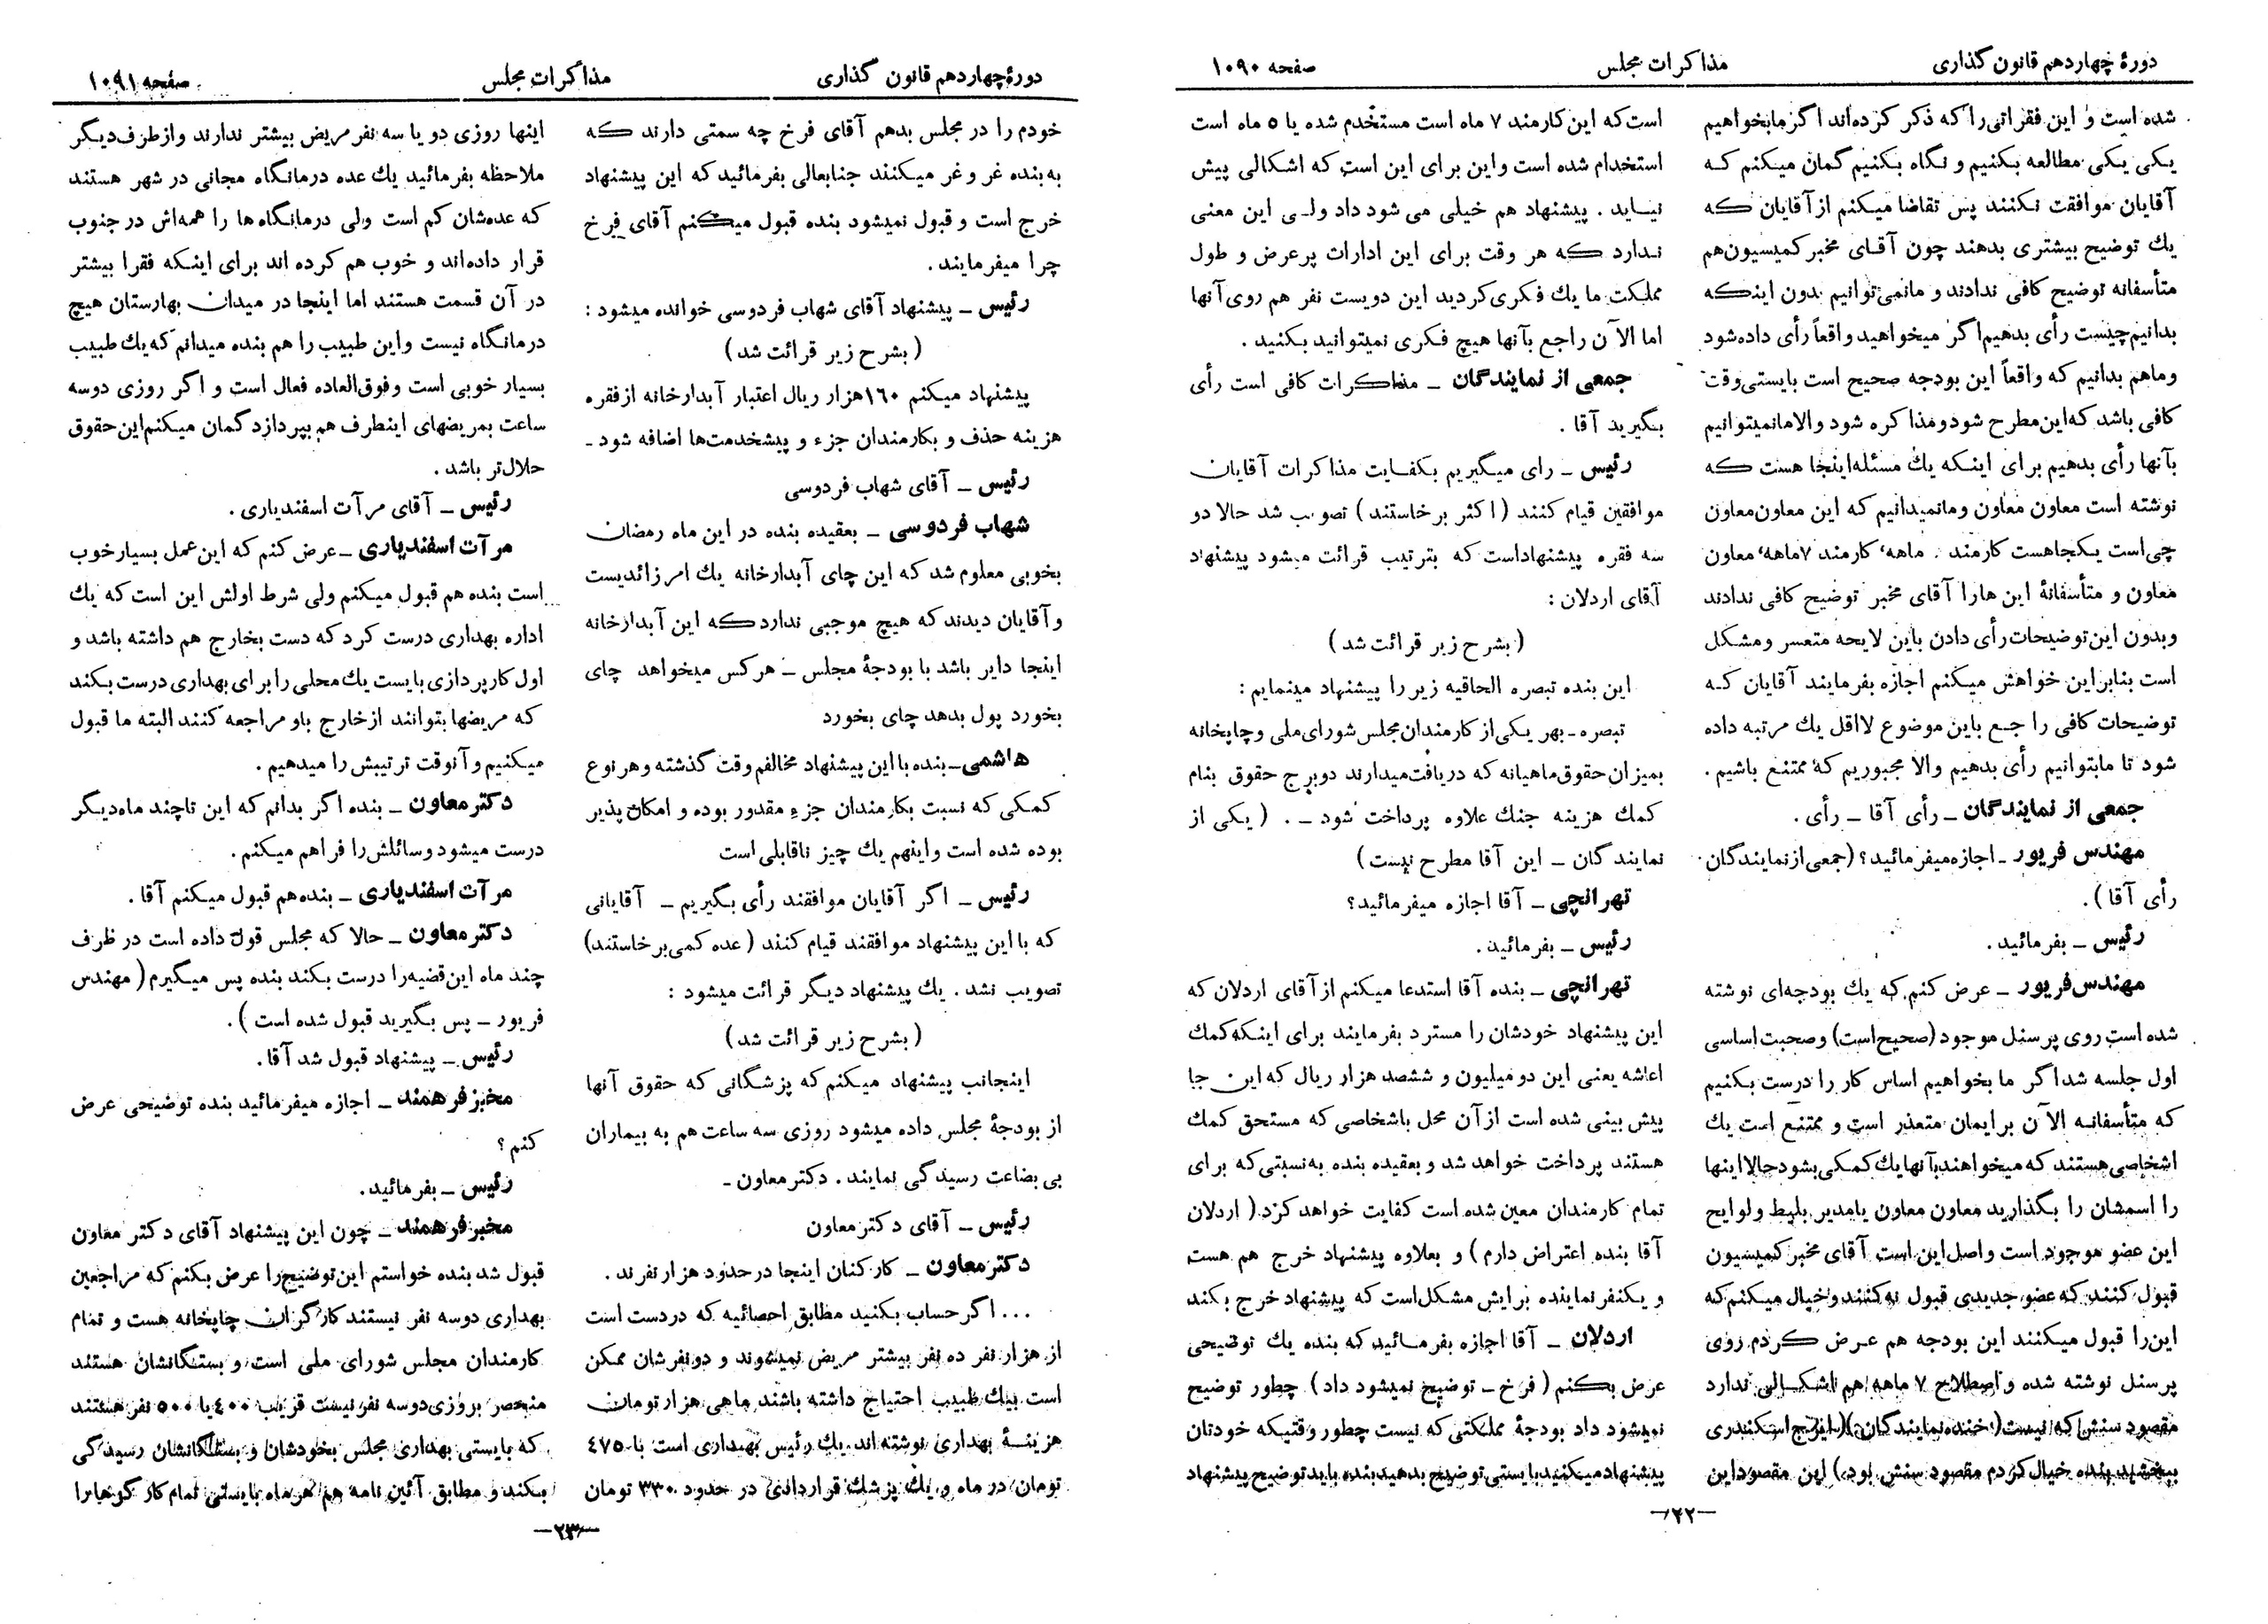 دورهٔ چهاردهم قانون گذاری
مذاکرات مجلس
صفحه ۱۰۹۰
شده است و این فقراتی را که ذکر کرده‌اند اگر ما بخواهیم
یکی یکی مطالعه بکنیم و نگاه بکنیم گمان میکنم که
آقایان موافقت نکنند پس تقاضا میکنم از آقایان که
یك توضیح بیشتری بدهند چون آقای مخبر کمیسیون هم
متأسفانه توضیح کافی ندادند و ما نمی توانیم بدون اینکه
بدانیم چیست رأی بدهیم اگر میخواهید واقعاً رأی داده شود
و ماهم بدانیم که واقعاً این بودجه صحیح است بایستی وقت
کافی باشد که این مطرح شود و مذاکره شود والا ما نمیتوانیم
بآنها رأی بدهیم برای اینکه یك مسئله اینجا هست که
نوشته است معاون معاون و ما نمیدانیم که این معاون معاون
چی است یکجا هست کارمند ماهه، کارمند ۷ ماهه، معاون
معاون و متأسفانهٔ این هارا آقای مخبر توضیح کافی ندادند
وبدون این توضیحات رأی دادن باین لایحه متعسر و مشکل
است بنابر این خواهش میکنم اجازه بفرمایند آقایان که
توضیحات کافی را جع باین موضوع لااقل یك مرتبه داده
شود تا ما بتوانیم رأی بدهیم والا مجبوریم که ممتنع باشیم .
جمعی از نمایندگان ـ رأی آقا ـ رأی .
مهندس فریور ـ اجازه میفرمائید؟ (جمعی از نمایندگان
رأی آقا ) .
رئیس ـ بفرمائید.
مهندس فریور ـ عرض کنم که یك بودجه‌ای نوشته
شده است روی پرسنل موجود (صحیح است) و صحبت اساسی
اول جلسه شد اگر ما بخواهیم اساس کار را درست بکنیم
که متأسفانه الآن برایمان متعذر است و ممتنع است یك
اشخاصی هستند که میخواهند بآنها یك کمکی بشود حالا اینها
را اسمشان را بگذارید معاون معاون یا مدیر بلیط و لوایح
این عضو موجود است واصل این است آقای مخبر کمیسیون
قبول کنند که عضو جدیدی قبول نه کنند و خیال میکنم که
این را قبول میکنند این بودجه هم عرض کردم روی
پرسنل نوشته شده و اصطلاح ۷ ماهه هم اشکالی ندارد
مقصود سنش که نیست (خنده نمایندگان) (ایرج اسکندری
ببخشید بنده خیال کردم مقصود سنش بود) این مقصود این
است که این کارمند ۷ ماه است مستخدم شده یا ۵ ماه است
استخدام شده است و این برای این است که اشکالی پیش
نیاید . پیشنهاد هم خیلی می شود داد ولی این معنی
ندارد که هر وقت برای این ادارات پر عرض و طول
مملکت ما یك فکری کردید این دویست نفر هم روی آنها
اما الآن راجع بآنها هیچ فکری نمیتوانید بکنید .
جمعی از نمایندگان ـ مذاکرات کافی است رأی
بگیرید آقا .
رئیس ـ رای میگیریم بکفایت مذاکرات آقایان
موافقین قیام کنند (اکثر برخاستند) تصویب شد حالا دو
سه فقره پیشنهاد است که بترتیب قرائت میشود پیشنهاد
آقای اردلان :
( بشرح زیر قرائت شد )
این بنده تبصره الحاقیه زیر را پیشنهاد مینمایم :
تبصره ـ بهر یکی از کارمندان مجلس شورای ملی و چاپخانه
بمیزان حقوق ماهیانه که دریافت میدارند دو برج حقوق بنام
کمك هزینه جنك علاوه پرداخت شود ـ . ( یکی از
نمایندگان ـ این آقا مطرح نیست )
تهرانچی ـ آقا اجازه میفرمائید؟
رئیس ـ بفرمائید.
تهرانچی ـ بنده آقا استدعا میکنم از آقای اردلان که
این پیشنهاد خودشان را مسترد بفرمایند برای اینکه کمك
اعاشه یعنی این دو میلیون و ششصد هزار ریال که این جا
پیش بینی شده است از آن محل باشخاصی که مستحق کمك
هستند پرداخت خواهد شد و بعقیده بنده به نسبتی که برای
تمام کارمندان معین شده است کفایت خواهد کرد ( اردلان
آقا بنده اعتراض دارم ) و بعلاوه پیشنهاد خرج هم هست
و یکنفر نماینده برایش مشکل است که پیشنهاد خرج بکند
اردلان ـ آقا اجازه بفرمائید که بنده یك توضیحی
عرض بکنم ( فرخ ـ توضیح نمیشود داد ) چطور توضیح
نمیشود داد بودجهٔ مملکتی که نیست چطور وقتیکه خودتان
پیشنهاد میکنید بایستی توضیح بدهید بنده باید توضیح پیشنهاد
ـ ۲۲ ـ
دورهٔ چهاردهم قانون گذاری
مذاکرات مجلس
صفحه ۱۰۹۱
خودم را در مجلس بدهم آقای فرخ چه سمتی دارند که
به بنده غر و غر میکنند جنابعالی بفرمائید که این پیشنهاد
خرج است و قبول نمیشود بنده قبول میکنم آقای فرخ
چرا میفرمایند .
رئیس ـ پیشنهاد آقای شهاب فردوسی خوانده میشود :
( بشرح زیر قرائت شد )
پیشنهاد میکنم ۱۶۰ هزار ریال اعتبار آبدارخانه از فقره
هزینه حذف و بکارمندان جزء و پیشخدمت‌ها اضافه شود ـ
رئیس ـ آقای شهاب فردوسی
شهاب فردوسی ـ بعقیده بنده در این ماه رمضان
بخوبی معلوم شد که این چای آبدارخانه یك امر زائدیست
و آقایان دیدند که هیچ موجبی ندارد که این آبدارخانه
اینجا دایر باشد با بودجهٔ مجلس ـ هرکس میخواهد چای
بخورد پول بدهد چای بخورد
هاشمی ـ بنده با این پیشنهاد مخالفم وقت گذشته و هر نوع
کمکی که نسبت بکارمندان جزء مقدور بوده و امکان پذیر
بوده شده است و اینهم یك چیز ناقابلی است
رئیس ـ اگر آقایان موافقند رأی بگیریم ـ آقایانی
که با این پیشنهاد موافقند قیام کنند ( عده کمی برخاستند)
تصویب نشد . یك پیشنهاد دیگر قرائت میشود :
( بشرح زیر قرائت شد )
اینجانب پیشنهاد میکنم که پزشگانی که حقوق آنها
از بودجهٔ مجلس داده میشود روزی سه ساعت هم به بیماران
بی بضاعت رسیدگی نمایند . دکتر معاون ـ
رئیس ـ آقای دکتر معاون
دکتر معاون ـ کارکنان اینجا در حدود هزار نفرند .
... اگر حساب بکنید مطابق احصائیه که در دست است
از هزار نفر ده نفر بیشتر مریض نمیشوند و دو نفرشان ممکن
است بیك طبیب احتیاج داشته باشند ماهی هزار تومان
هزینهٔ بهداری نوشته اند یك رئیس بهداری است با ۴۷۵
تومان در ماه و یك پزشك قراردادی در حدود ۳۳۰ تومان
اینها روزی دو یا سه نفر مریض بیشتر ندارند و از طرف دیگر
ملاحظه بفرمائید یك عده درمانگاه مجانی در شهر هستند
که عده‌شان کم است ولی درمانگاه ها را همه‌اش در جنوب
قرار داده‌اند و خوب هم کرده اند برای اینکه فقرا بیشتر
در آن قسمت هستند اما اینجا در میدان بهارستان هیچ
درمانگاه نیست و این طبیب را هم بنده میدانم که یك طبیب
بسیار خوبی است و فوق‌العاده فعال است و اگر روزی دوسه
ساعت بمریضهای اینطرف هم بپردازد گمان میکنم این حقوق
حلال‌تر باشد .
رئیس ـ آقای مرآت اسفندیاری .
مرآت اسفندیاری ـ عرض کنم که این عمل بسیار خوب
است بنده هم قبول میکنم ولی شرط اولش این است که یك
اداره بهداری درست کرد که دست بخارج هم داشته باشد و
اول کارپردازی بایست یك محلی را برای بهداری درست بکند
که مریضها بتوانند از خارج باو مراجعه کنند البته ما قبول
میکنیم و آنوقت ترتیبش را میدهیم .
دکتر معاون ـ بنده اگر بدانم که این تا چند ماه دیگر
درست میشود وسائلش را فراهم میکنم .
مرآت اسفندیاری ـ بنده هم قبول میکنم آقا .
دکتر معاون ـ حالا که مجلس قول داده است در ظرف
چند ماه این قضیه را درست بکند بنده پس میگیرم ( مهندس
فریور ـ پس بگیرید قبول شده است ) .
رئیس ـ پیشنهاد قبول شد آقا.
مخبر فرهمند ـ اجازه میفرمائید بنده توضیحی عرض
کنم ؟
رئیس ـ بفرمائید.
مخبر فرهمند ـ چون این پیشنهاد آقای دکتر معاون
قبول شد بنده خواستم این توضیح را عرض بکنم که مراجعین
بهداری دوسه نفر نیستند کارگران چاپخانه هست و تمام
کارمندان مجلس شورای ملی است و بستگانشان هستند
منحصر بروزی دوسه نفر نیست قریب ۴۰۰ یا ۵۰۰ نفر هستند
که بایستی بهداری مجلس بخودشان و بستگانشان رسیدگی
بکند و مطابق آئین نامه هم هر ماه بایستی تمام کارگرها را
ـ ۲۳ ـ